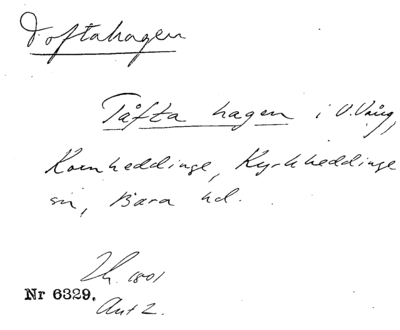 Toftahagen
Tåfta hagen i V. Vång,
Kornheddinge, Kyrkheddinge
sn, Bara hd.
1801
Nr 6329.
Akt 2.